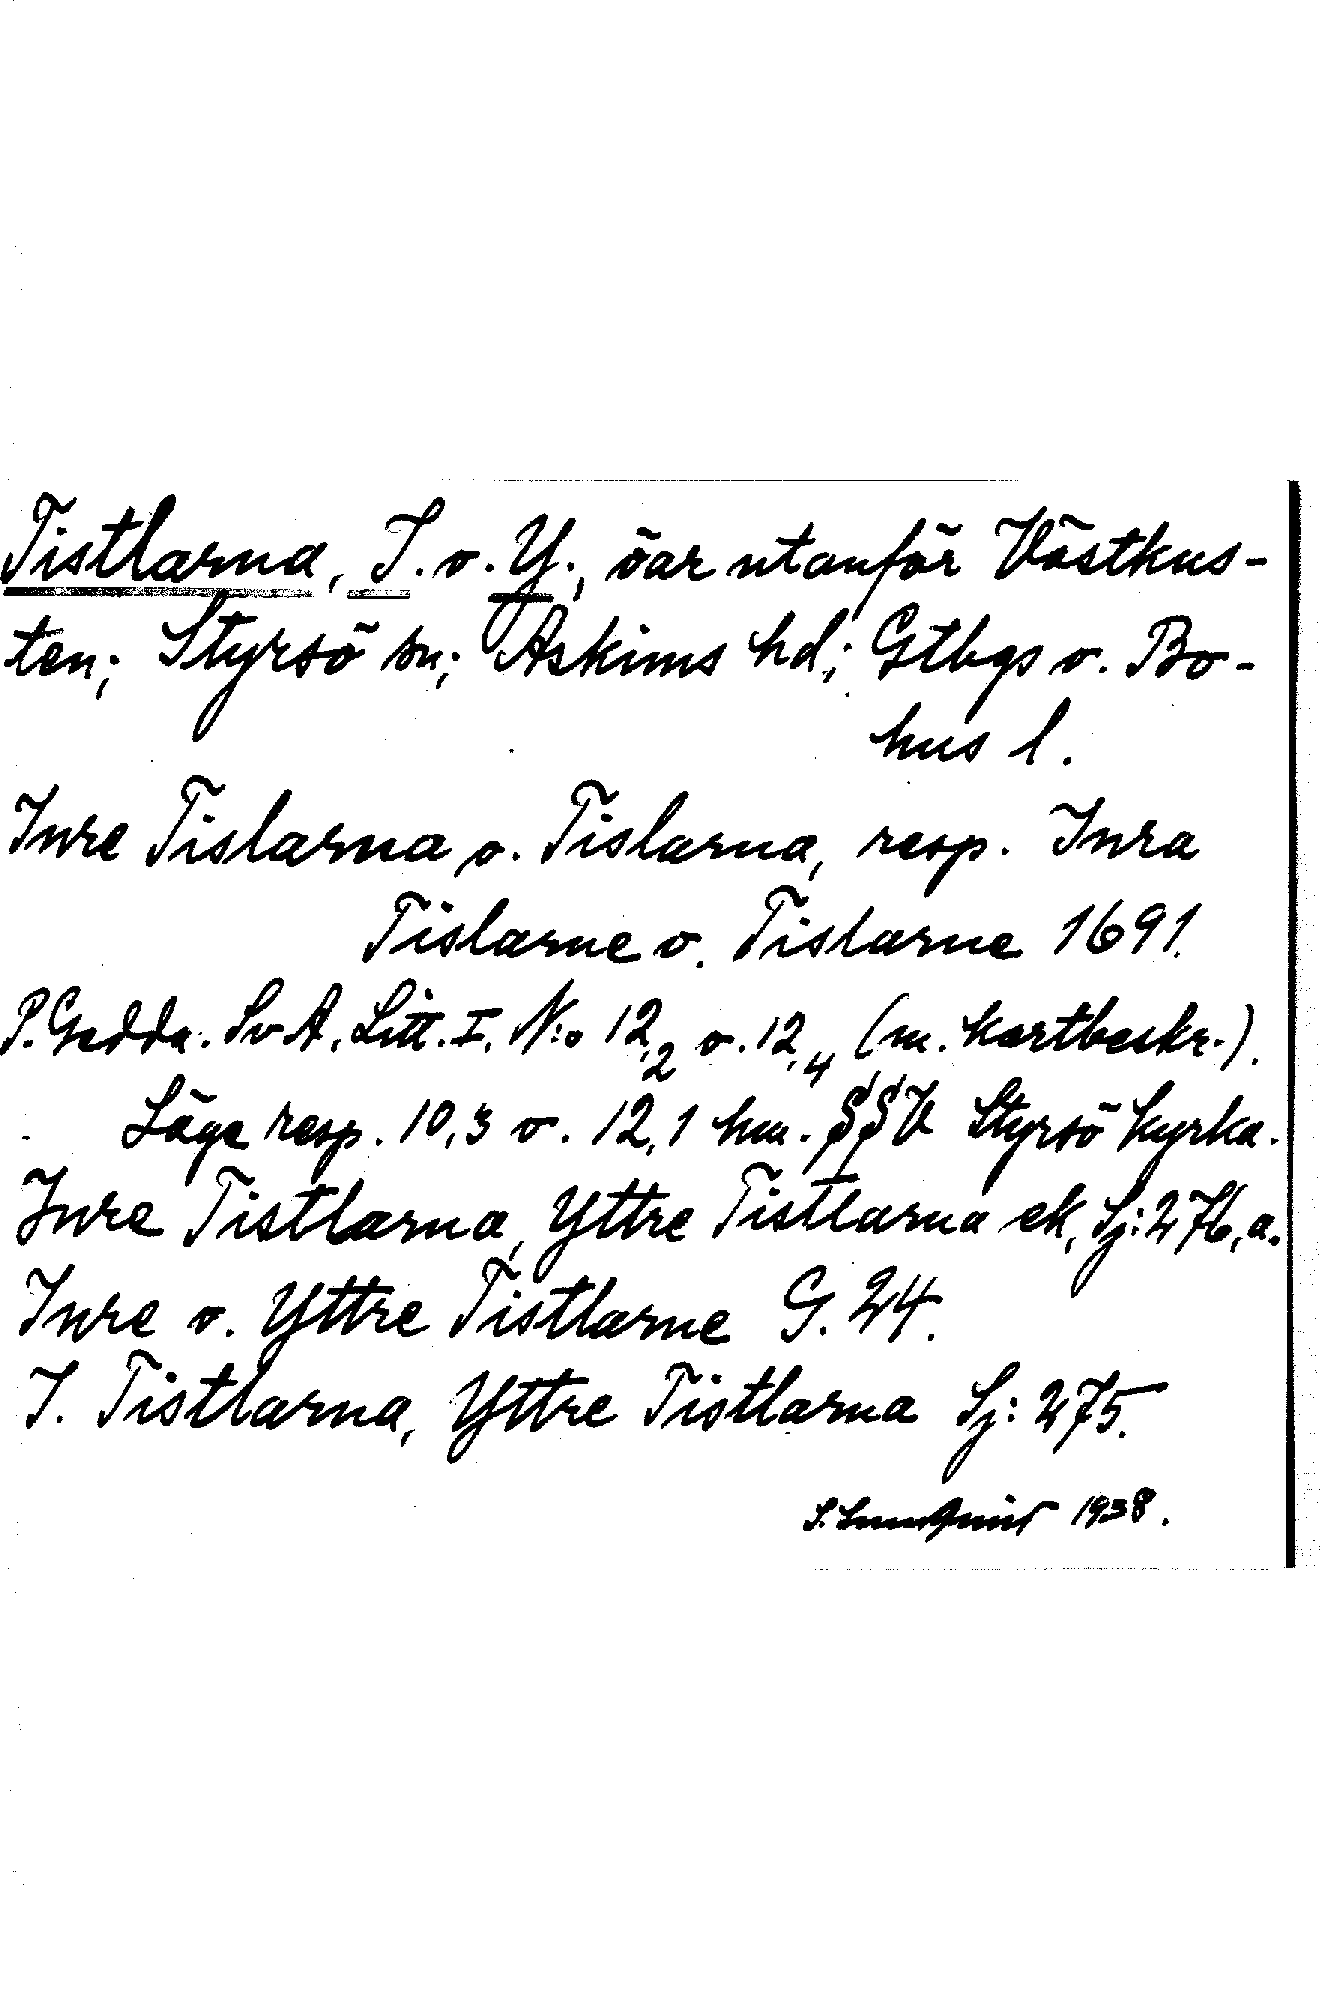 Tistlarna, I. o. Y., öar utanför Västkus-
ten; Styrsö sn; Askims hd; Gtbgs o. Bo-
hus l.
Inre Tislarna o. Tislarna, resp. Inra
Tislarne o. Tislarne 1691.
P. Gedda. SvA, Litt. I. N:o 12,2 o. 12,4 (m. kartbeskr.).
Läge resp. 10,3 o. 12,1 km. SSV Styrsö kyrka.
Inre Tistlarna, Yttre Tistlarna ek, Sj: 276, a.
Inre o. Yttre Tistlarne G. 24.
I. Tistlarna, Yttre Tistlarna Sj: 275.
S. 1938.